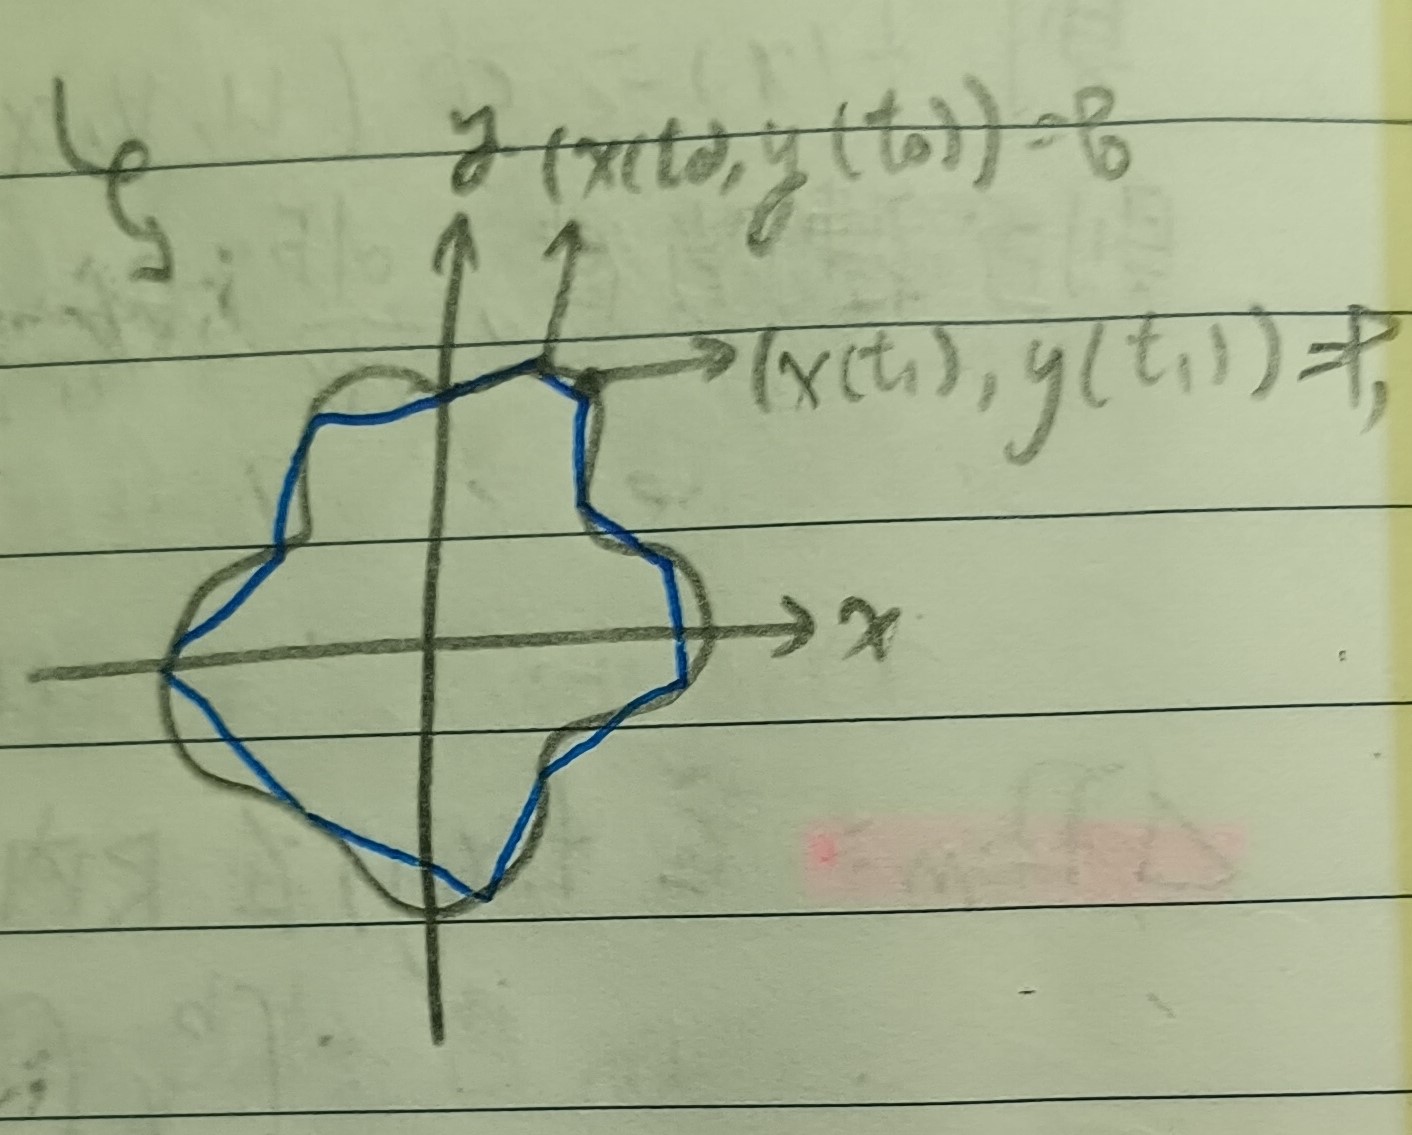 y (x(t₀), y(t₀)) = P₀
(x(t₁), y(t₁)) = P₁
x